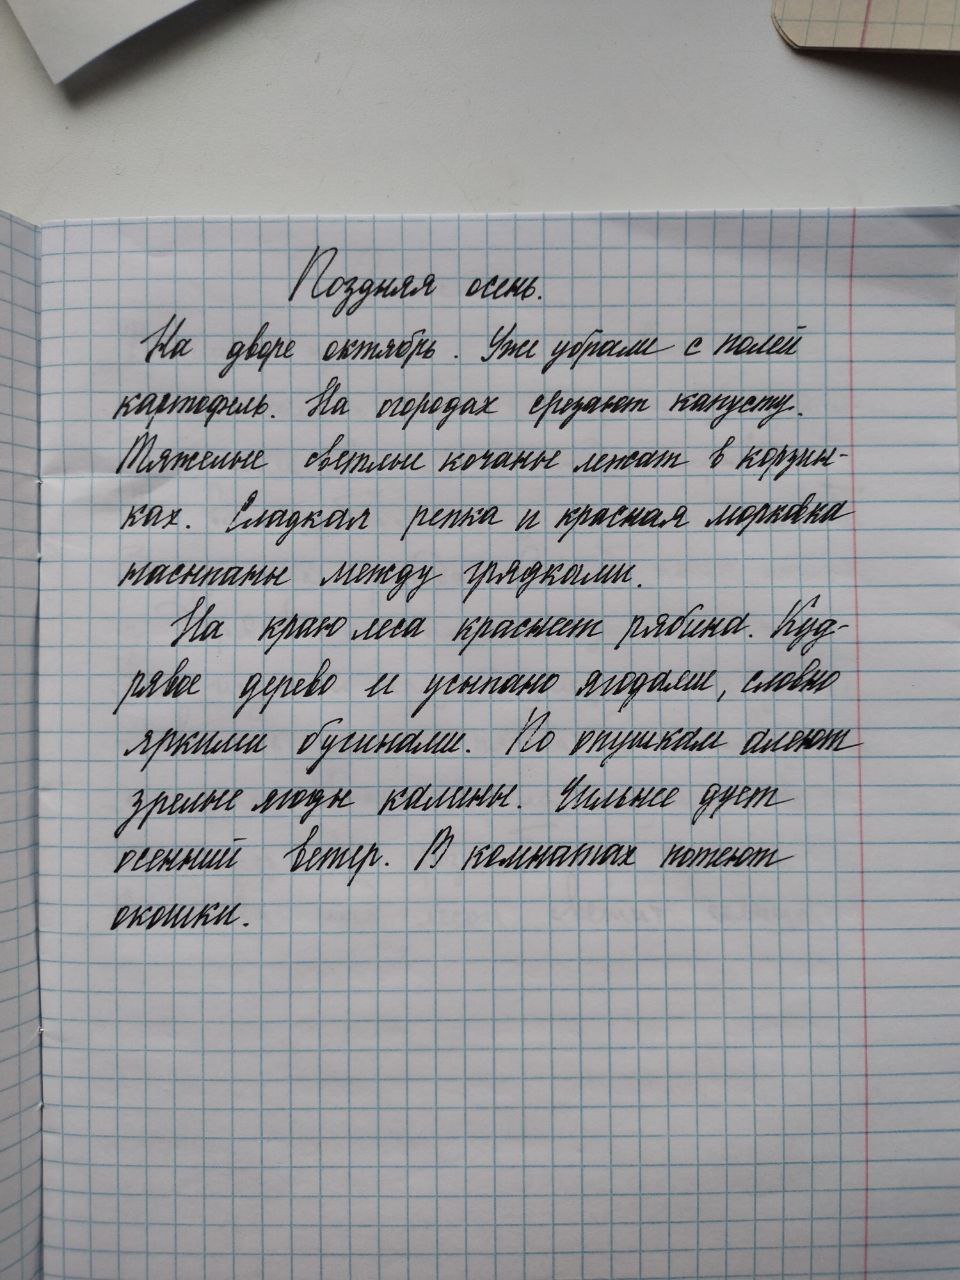 Поздняя осень.
На дворе октябрь. Уже убрали с полей
картофель. На огородах срезают капусту.
Тяжелые светлые кочаны лежат в корзин-
ках. Сладкая репка и красная морковка
насыпаны между грядками.
На краю леса краснеет рябина. Куд-
рявое дерево и усыпано ягодами, словно
яркими бусинами. По опушкам алеют
зрелые ягоды калины. Сильнее дует
осенний ветер. В комнатах потеют
окошки.